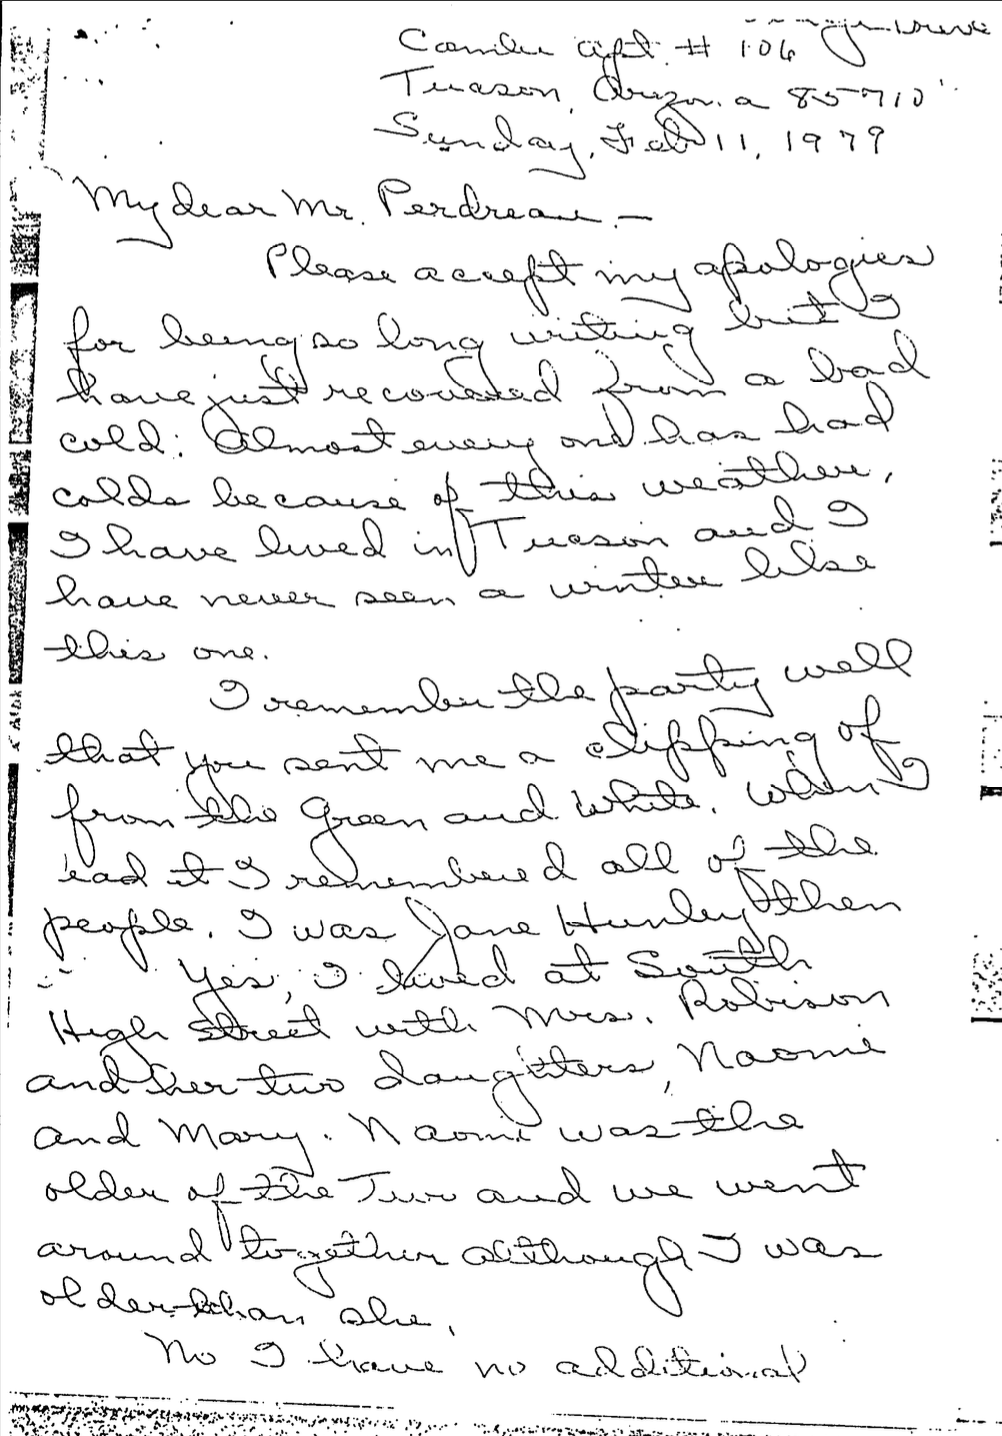 Drive
Apt. # 106
Tucson, Arizona 85710
Sunday, Feb 11, 1979
My dear Mr. Perdreau -
Please accept my apologies
for being so long writing but I
have just recovered from a bad
cold: Almost every one has had
colds because of this weather,
I have lived in Tucson and I
have never seen a winter like
this one.
I remember the party well
that you sent me a clipping of
from the Green and White. When I
read it I remembered all of the
people. I was Jane Hunley then
Yes, I lived at South
High Street with Mrs. Robison
and her two daughters, Naomi
and Mary. Naomi was the
older of the Two and we went
around together although I was
older than she.
No I have no additional